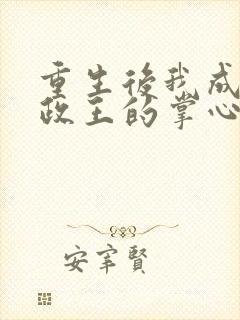 重生後我成
政王的掌心
安宰賢